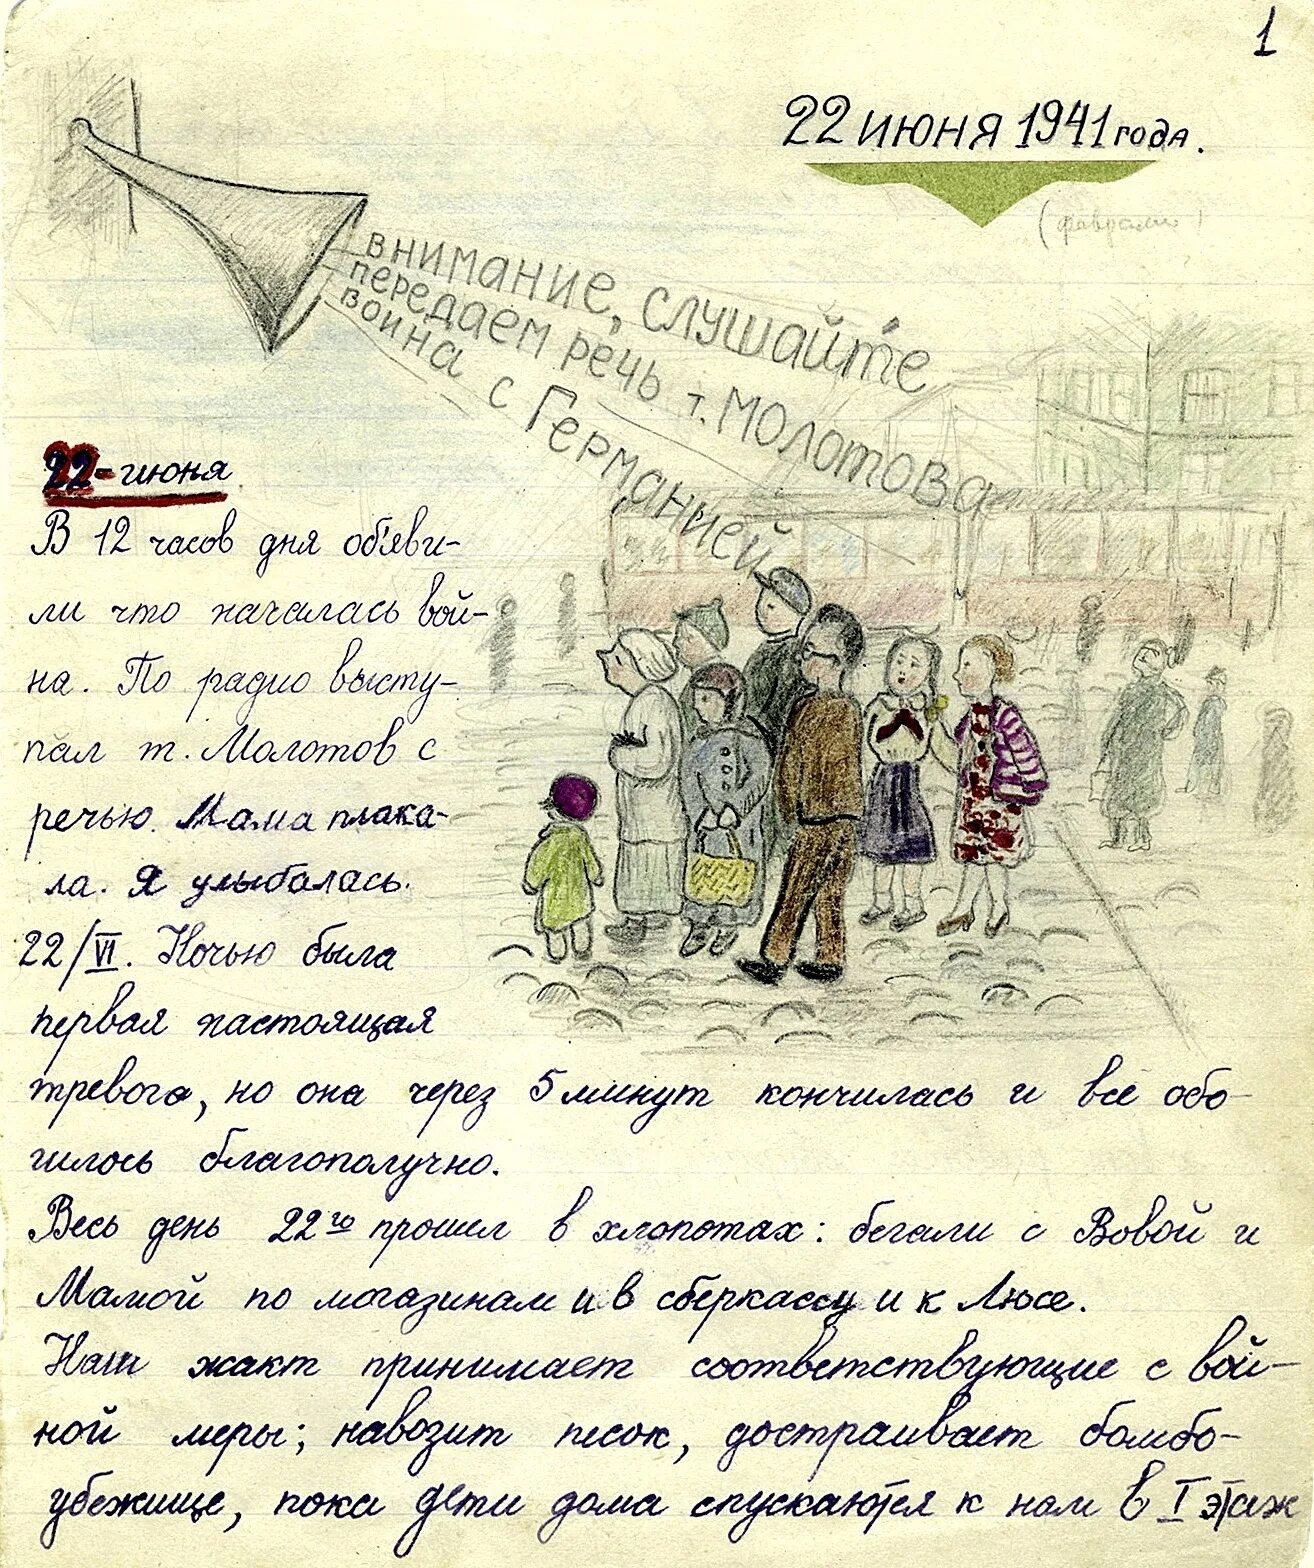 1
22 июня 1941 года.
внимание, слушайте
передаем речь т. Молотова
война с Германией
22-июня
В 12 часов дня об'яви-
ли что началась вой-
на. По радио высту-
пал т. Молотов с
речью. Мама плака-
ла. Я улыбалась.
22/VI. Ночью была
первая настоящая
тревога, но она через 5 минут кончилась и всё обо-
шлось благополучно.
Весь день 22го прошел в хлопотах: бегали с Вовой и
Мамой по магазинам и в сберкассу и к Люсе.
Наш жакт принимает соответствующие с вой-
ной меры; навозит песок, достраивает бомбо-
убежище, пока дети дома спускаются к нам в I этаж